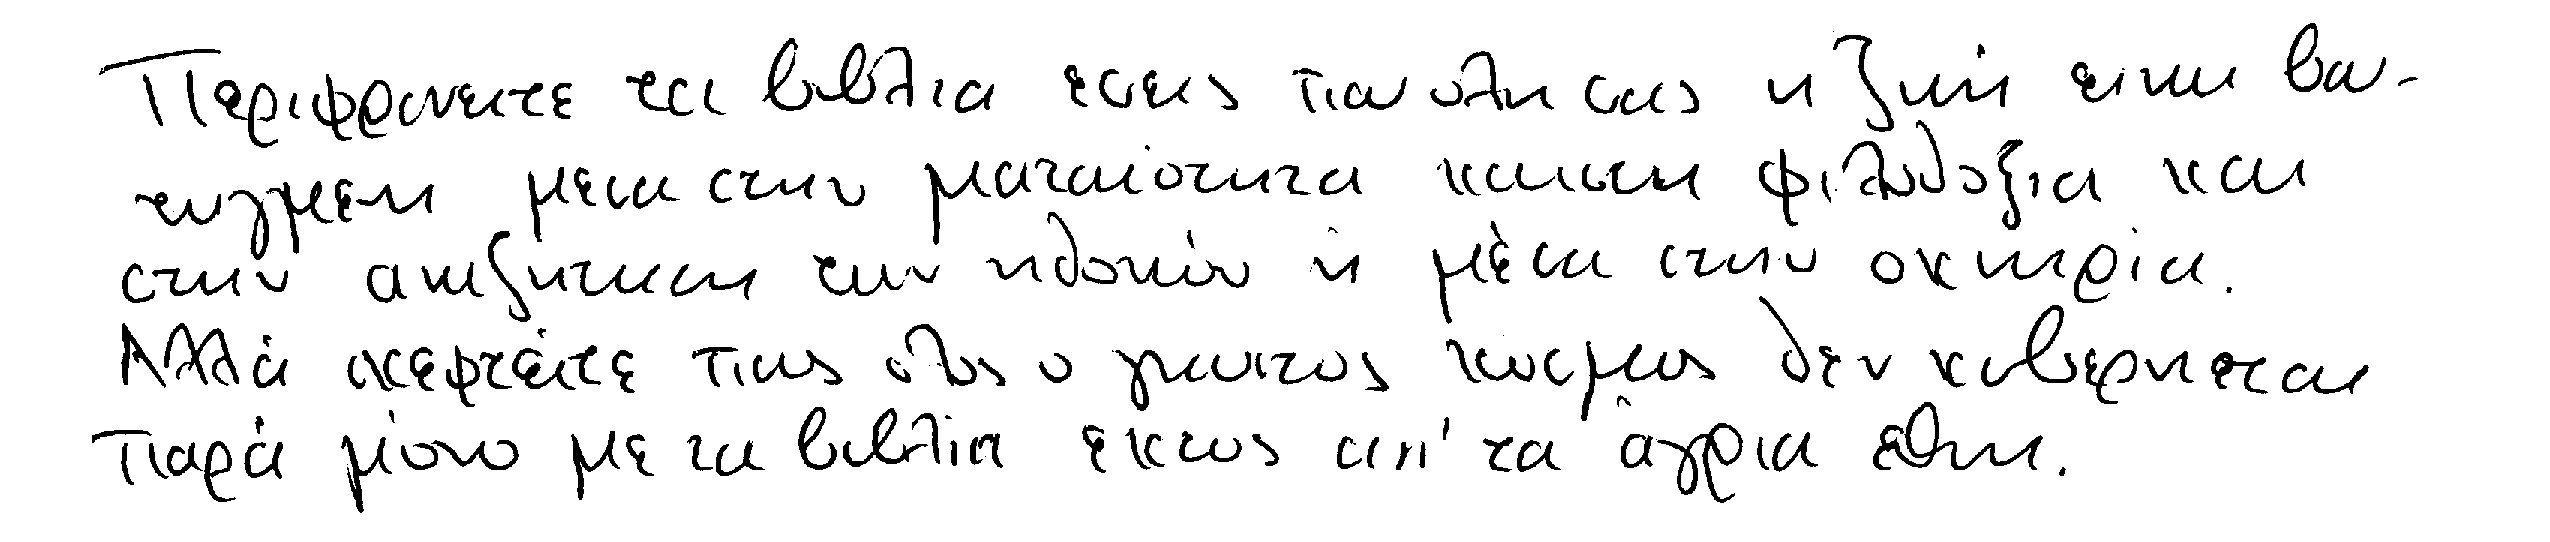 Περιφρονειτε τα βιβλια εσεις που ολη σας η ζωή ειναι βου-
τηγμενη μεσα στην ματαιότητα και στη φιλοδοξια και
στην αναζητηση των ηδονών ή μέσα στην οκνηρία.
Αλλά σκεφτείτε πως ολος ο γνωστος κοσμος δεν κυβερνεται
παρά μόνο με τα βιβλία εκτος απ' τα άγρια εθνη.